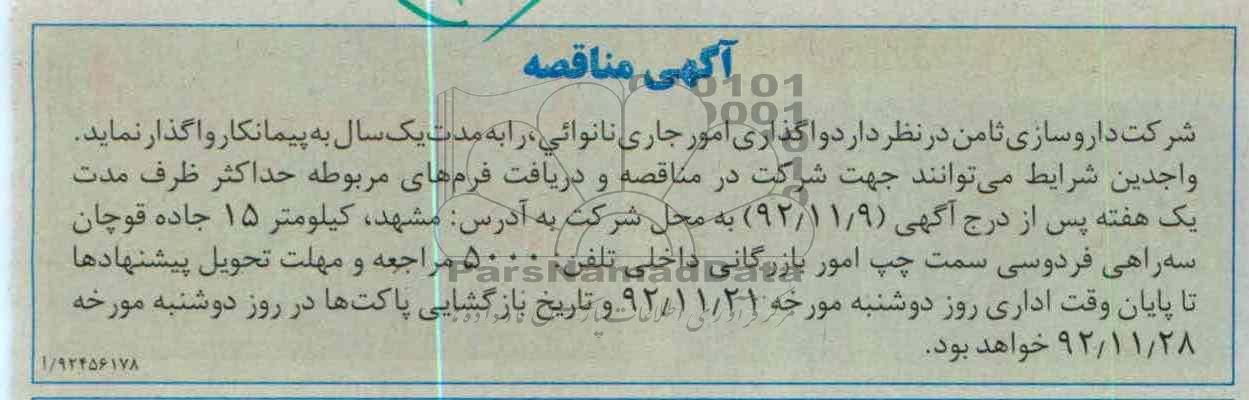 آگهی مناقصه
شرکت داروسازی ثامن در نظر دارد واگذاری امور جاری نانوائي، را به مدت یک سال به پیمانکار واگذار نماید.
واجدین شرایط می‌توانند جهت شرکت در مناقصه و دریافت فرم‌های مربوطه حداکثر ظرف مدت
یک هفته پس از درج آگهی (۹۲/۱۱/۹) به محل شرکت به آدرس: مشهد، کیلومتر ۱۵ جاده قوچان
سه‌راهی فردوسی سمت چپ امور بازرگانی داخلی تلفن: ۵۰۰۰۰ مراجعه و مهلت تحویل پیشنهادها
ParsNamadData
تا پایان وقت اداری روز دوشنبه مورخه ۹۲/۱۱/۲۱ و تاریخ بازگشایی پاکت‌ها در روز دوشنبه مورخه
۹۲/۱۱/۲۸ خواهد بود.
۱/۹۲۴۵۶۱۷۸